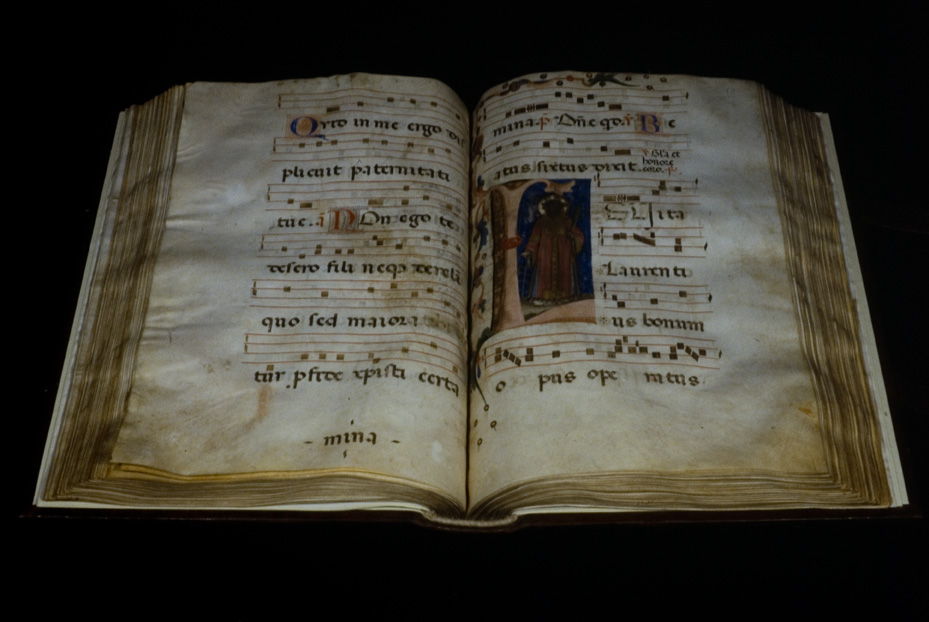 Qvid in me ergo di
plicuit paternitati
tue. a N On ego te
desero fili neqz derelī
quo sed maiora
tur. p fide xpisti certa
- mina -
mina. p Dñe qo. r B e
atus sixtus dixit. v Gl'a et
honore
L e u i t a
Laurenti
us bonum
o pus ope ratus